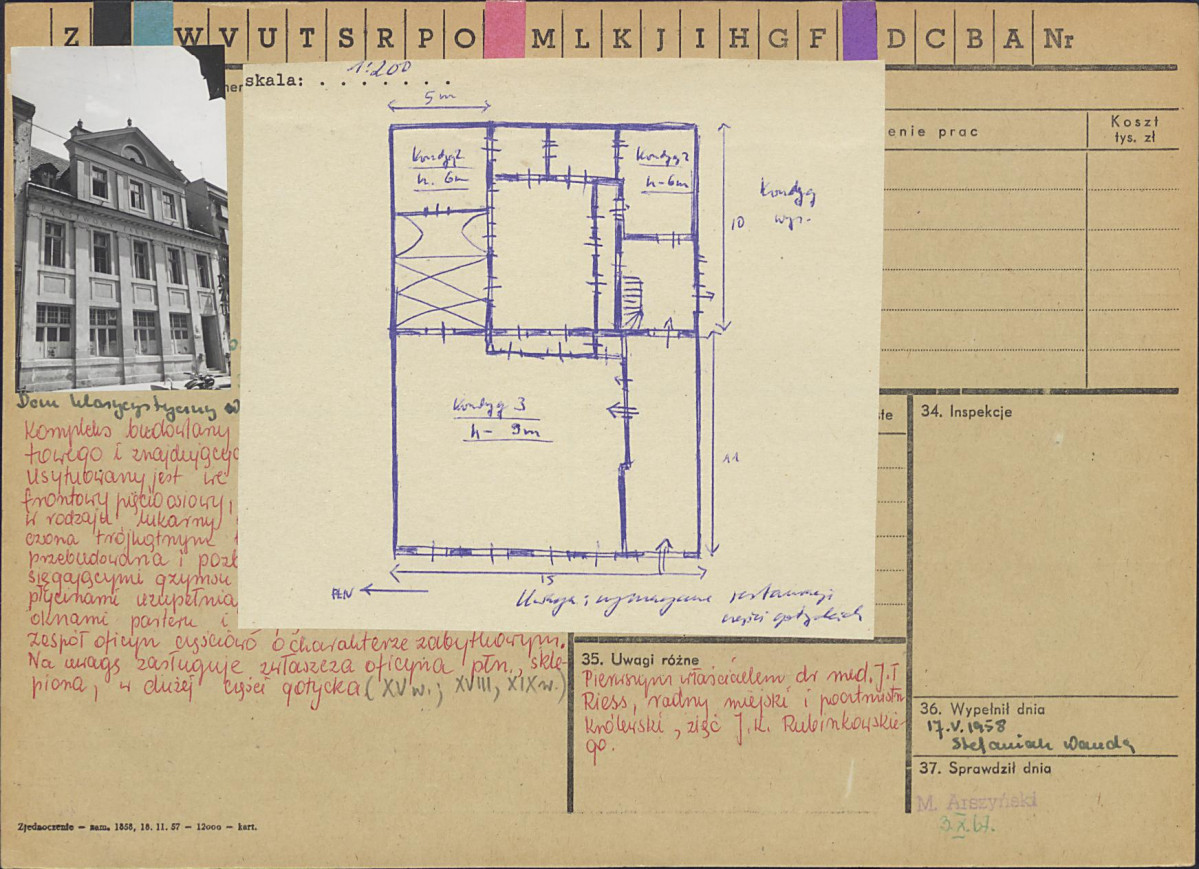 Z W V U T S R P O M L K J I H G F D C B A Nr
skala: 1:200
5 m
Kondyg 2
h. 6m
Kondyg 2
h - 6m
Kondyg
wys.
10
Kondyg 3
h - 9m
11
15
PŁN
Uwaga: wymagane
części gotyckich
enie prac
Koszt
tys. zł
Dom klasycystyczny
Kompleks budowlany
towego i znajdującego
Usytuowany jest we
frontowy pięcioosiowy,
w rodzaju lukarny
czona trójkątnym
przebudowana i pozb
sięgającymi gzymsu
płycinami uzupełnia
oknami parteru i
zespół oficyn częściowo o charakterze zabytkowym.
Na uwagę zasługuje zwłaszcza oficyna płn., skle-
piona, w dużej części gotycka (XV w.; XVIII, XIX w.)
34. Inspekcje
35. Uwagi różne
Pierwszym właścicielem dr med. J.T
Riess, radny miejski i poczmistrz
królewski, zięć J.K. Rubinkowskie-
go.
36. Wypełnił dnia
17.V.1958
Stefaniak Wanda
37. Sprawdził dnia
M. Arszyński
3.X.67.
Zjednoczenie — zam. 1858, 18. 11. 57 — 12000 — kart.